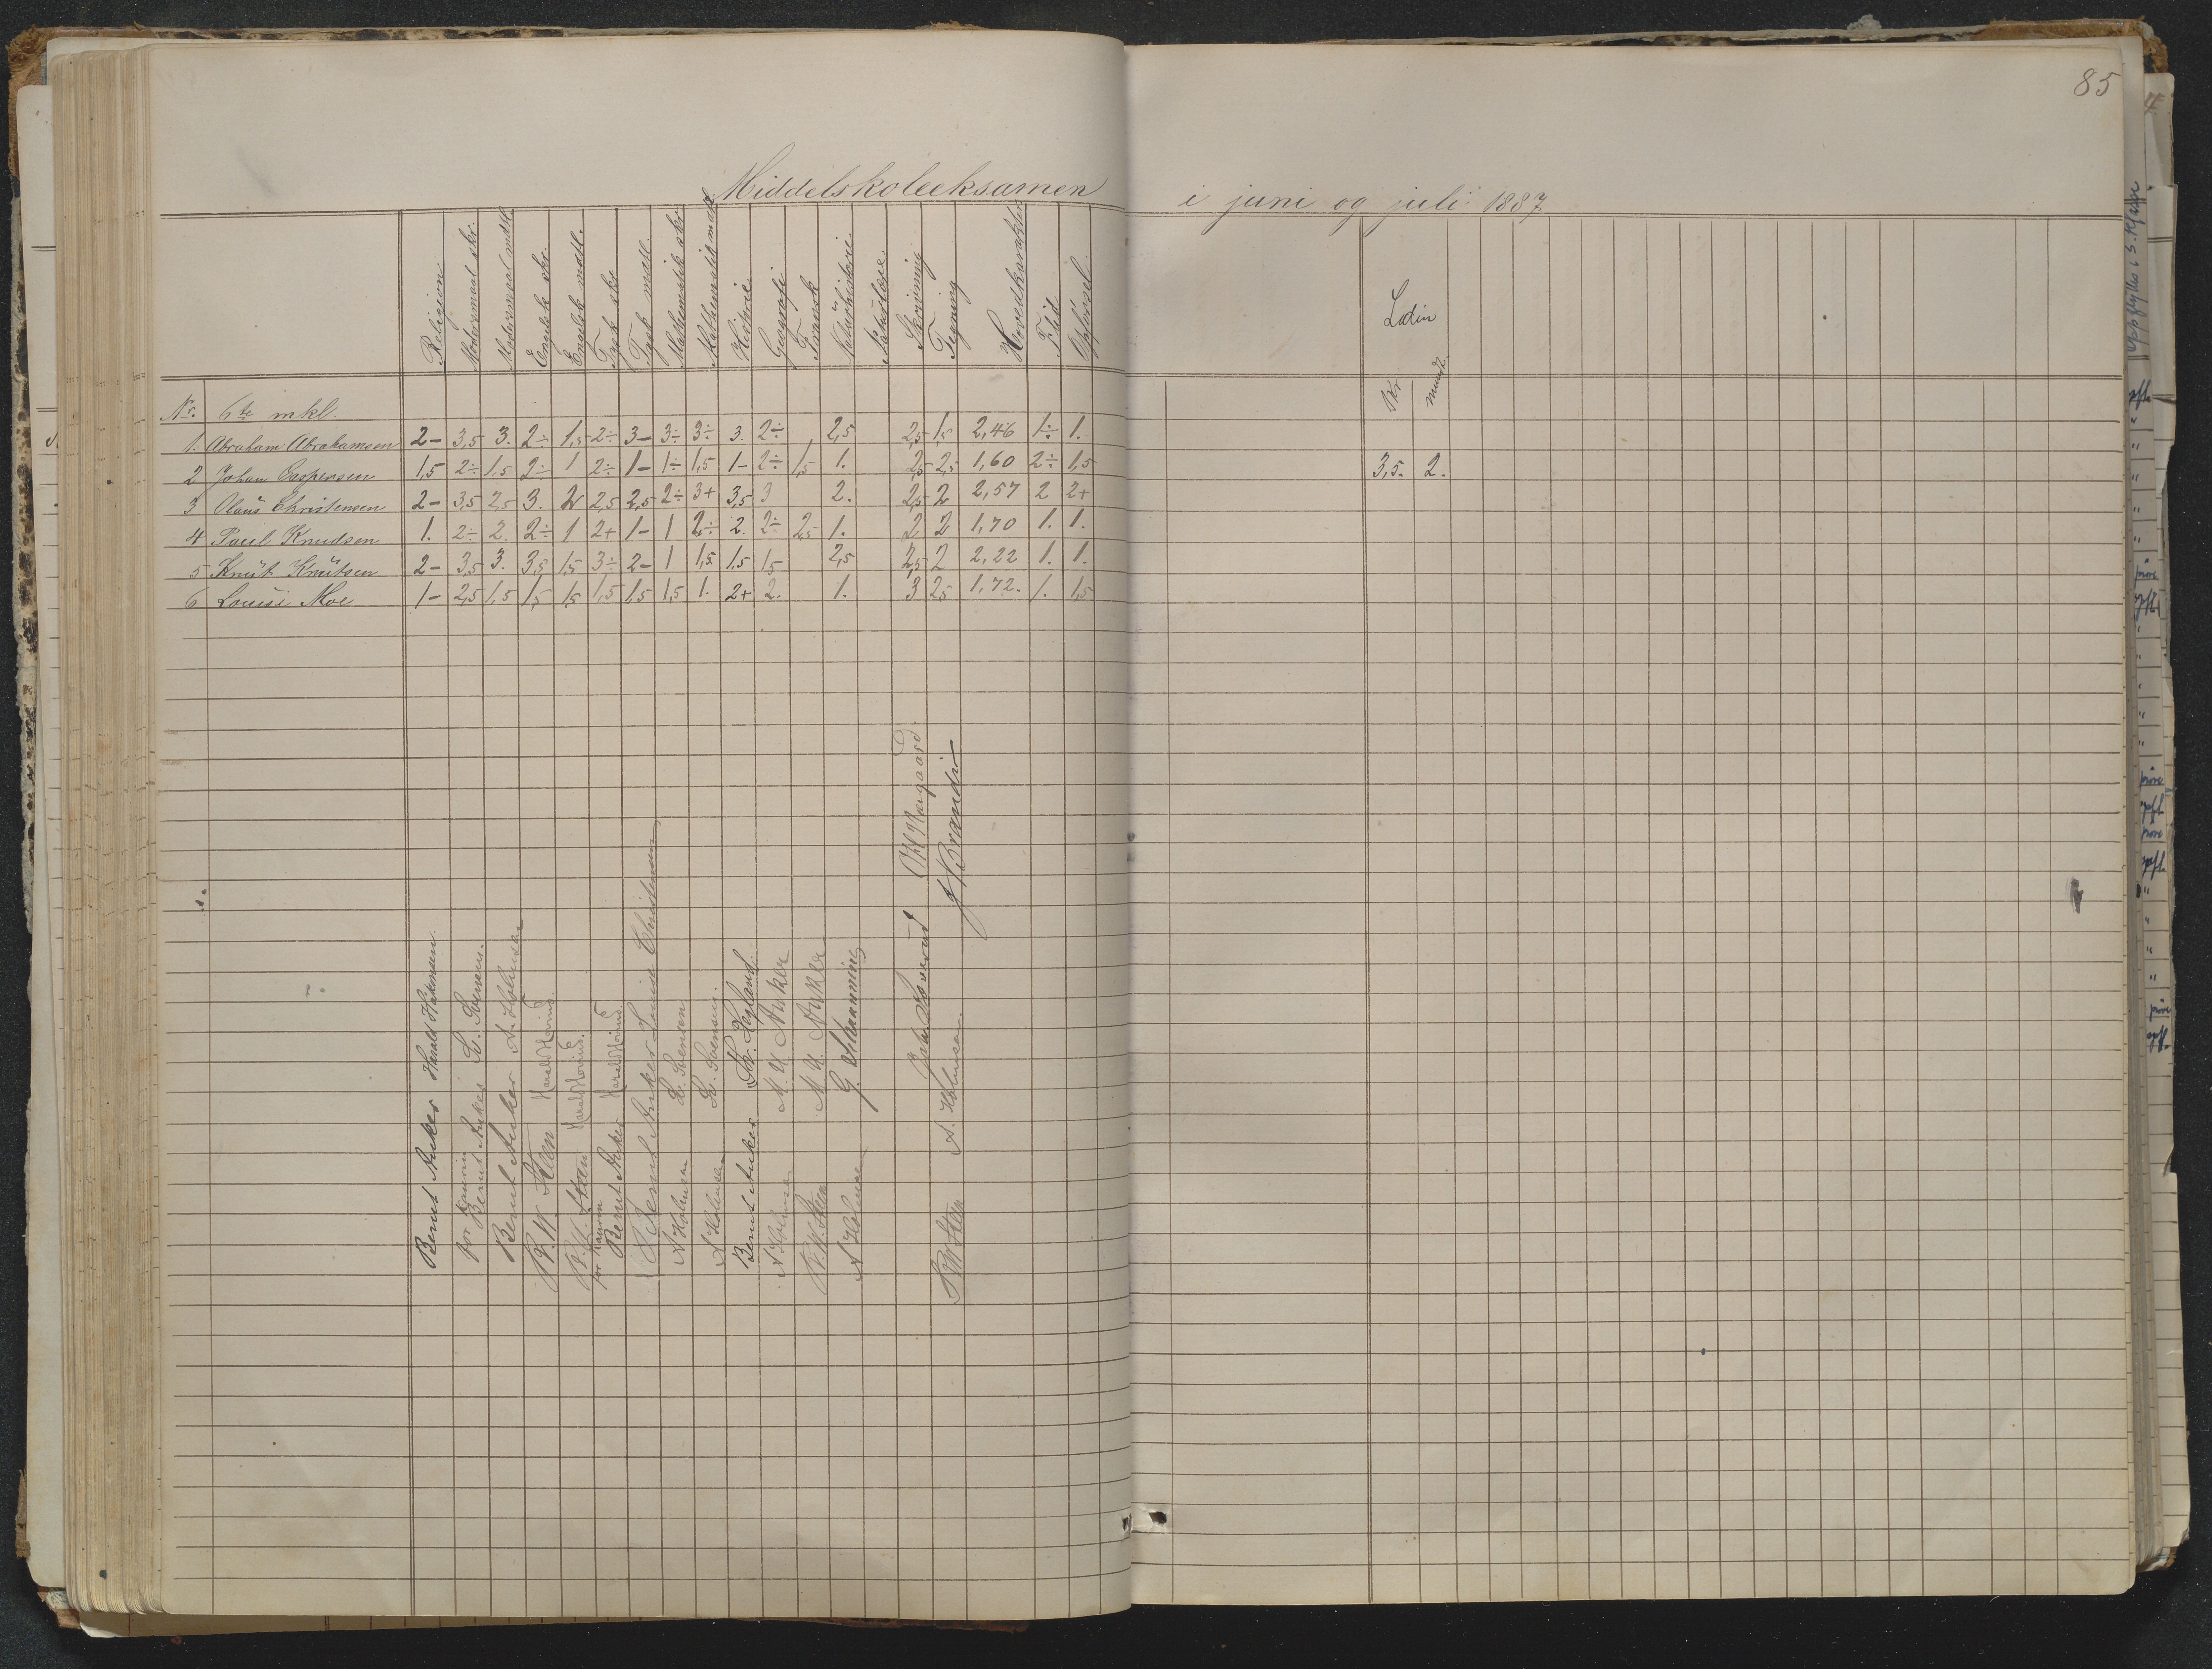 85
Middelskoleeksamen i juni og juli 1887
Religion Modersmaal skr. Modersmaal mdtl. Engelsk skr. Engelsk mdtl. Tysk skr. Tysk mdtl. Mathematik skr. Mathematik mdtl. Historie Geografi Fransk Naturhistorie Naturlære Skrivning Tegning Hovedkarakter Flid Opførsel. Latin
Skr. mundtl.
Nr. 6te mkl.
1. Abraham Abrahamsen 2- 3,5 3. 2÷ 1,5 2÷ 3- 3÷ 3÷ 3. 2÷ 2,5 2,5 1,5 2,46 1÷ 1.
2 Johan Caspersen 1,5 2÷ 1,5 2÷ 1 2÷ 1- 1÷ 1,5 1- 2÷ 1,5 1. 2,5 2,5 1,60 2÷ 1,5 3,5. 2.
3 Olaus Christensen 2- 3,5 2,5 3. 2 2,5 2,5 2÷ 3+ 3,5 3 2. 2,5 2 2,57 2 2+
4 Paul Knudsen 1. 2÷ 2. 2÷ 1 2+ 1- 1 2÷ 2. 2÷ 2,5 1. 2 2 1,70 1. 1.
5 Knut Knutsen 2- 3,5 3. 3,5 1,5 3÷ 2- 1 1,5 1,5 1,5 2,5 2,5 2 2,22 1. 1.
6 Louise Moe 1- 2,5 1,5 1,5 1,5 1,5 1,5 1,5 1. 2+ 2. 1. 3 2,5 1,72. 1. 1,5
Bernt Anker Harald
for Kaurin
Bernt Anker
Bernt Anker A. Holmsen
P. W. Steen Harald Hovind.
P. W. Steen Harald Hovind.
for Kaurin
Bernt Anker Harald Hovind
Bernt Anker Louise Christensen
A Holmsen L. Svensen
A Holmsen L. Svensen.
Bernt Anker
A Holmsen M. A. Anker
P. W. Steen M. A. Anker
A Holmsen
P W Steen A. Holmsen